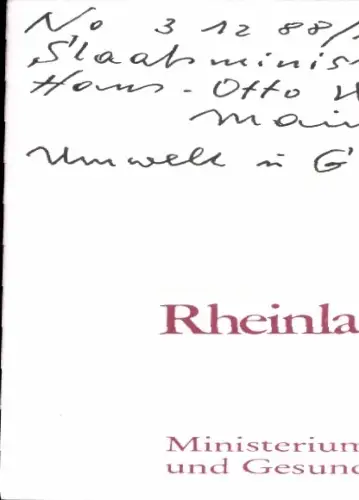 No 3 12 88/1
Staatsminis
Hans-Otto W
Main
Umwelt u G
Rheinla
Ministerium
und Gesund